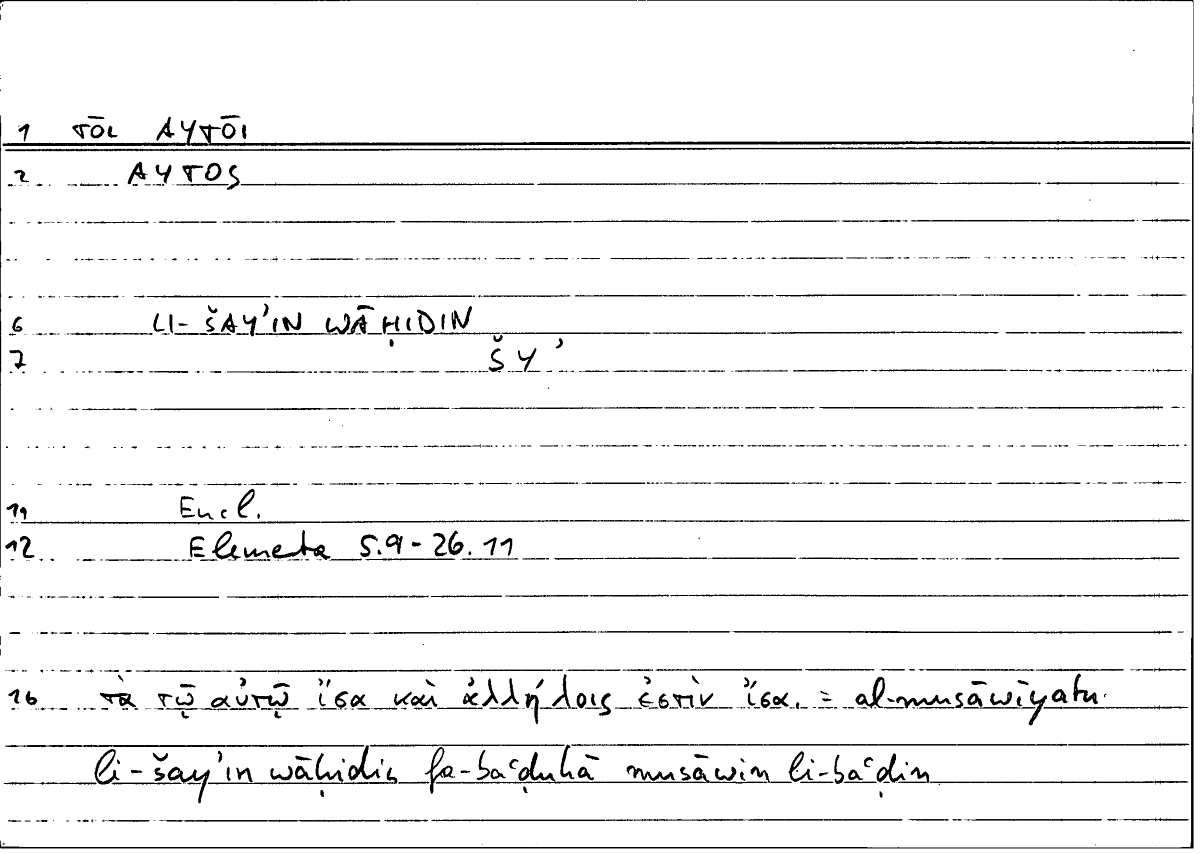 1 τō̄ι ΑΥΤŌΙ
2 ΑΥΤΟς
6 LI-ŠAY'IN WĀḤIDIN
7 ŠY'
11 Eucl.
12 Elementa 5.9-26.11
16 τὰ τῷ αὐτῷ ἴσα καὶ ἀλλήλοις ἐστὶν ἴσα. = al-musāwīyatu
li-šay'in wāḥidin fa-baʿḍuhā musāwin li-baʿḍin